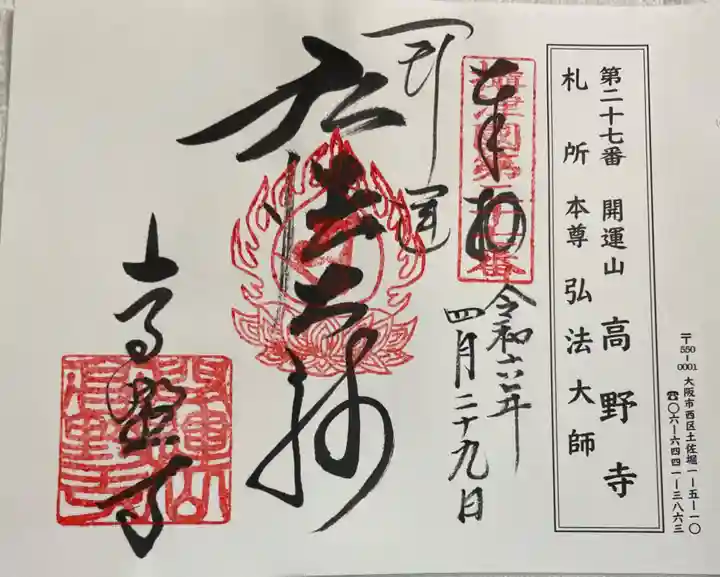 第二十七番 開運山 高野寺
札所本尊 弘法大師
〒550-0001 大阪市西区土佐堀一-五-一〇
☎〇六-六四四一-三八六三
奉拝
令和六年
四月二十九日
開運
弘法大師
高野寺